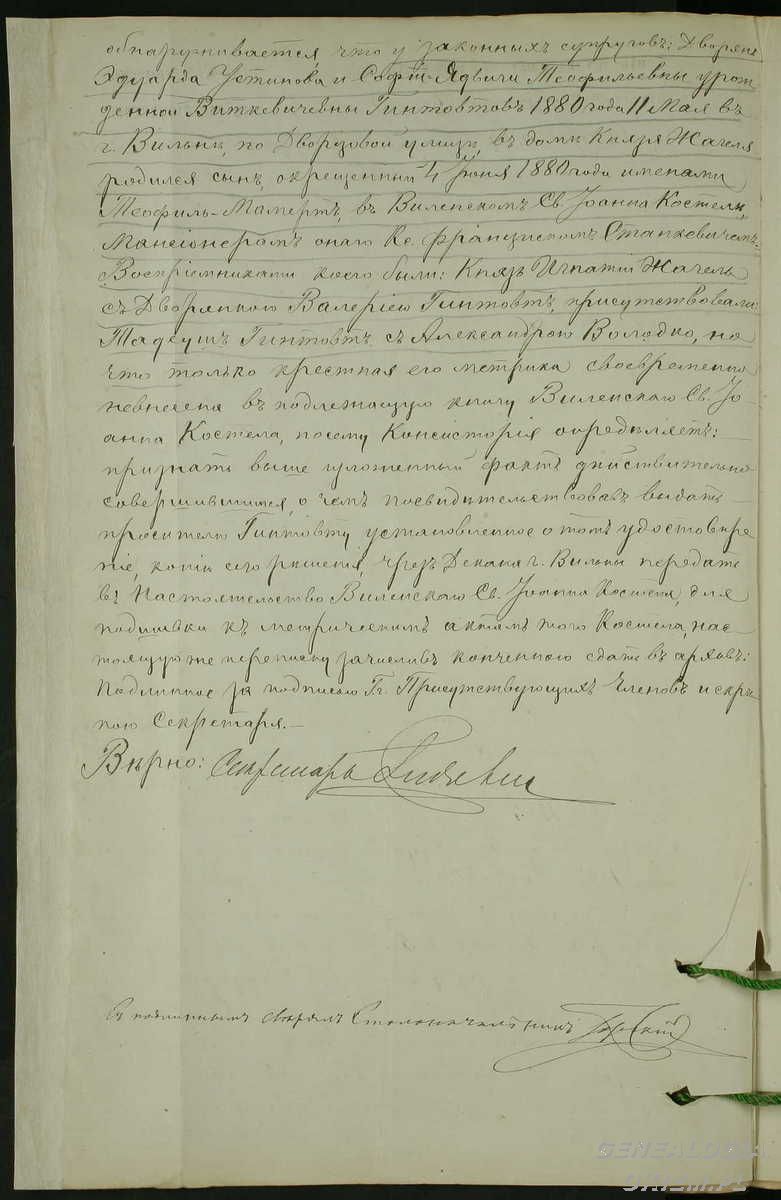 обнаруживается, что у законныхъ супруговъ: Дворянъ
Эдуарда Устинова и Софіи-Ядвиги Теофильевны урож
денной Виткевичевны Гинтовтовъ 1880 года 11 Мая въ
г. Вильнѣ, по Дворцовой улицѣ, въ домѣ Князя Жагеля
родился сынъ, окрещенный 4 Іюня 1880 года именами
Теофиль-Мамертъ, въ Виленскомъ Св. Іоанна Костелѣ,
Мансіонеромъ онаго Кс. Францискомъ Станкевичемъ.
Воспріемниками коего были: Князь Игнатій Жагель
съ Дворянкою Валеріею Гинтовтъ, присутствовали:
Тадеушъ Гинтовтъ съ Александрою Володко, но
что только крестная его метрика своевременно
невнесена въ подлежащую книгу Виленскаго Св. Іо
анна Костела, посему Консисторія опредѣляетъ:
признать выше изложенный фактъ дѣйствительно
совершившимся, о чемъ посвидѣтельствовавъ выдать
просителю Гинтовту установленное о томъ удостовѣре
ніе, копію сего рѣшенія, чрезъ Декана г. Вильны передать
въ Настоятельство Виленскаго Св. Іоанна Костела, для
подшивки къ метрическимъ актамъ того Костела, нас
тоящую же переписку зачисливъ конченною сдать въ архивъ:
Подлинное за подписью Гг. Присутствующихъ Членовъ и скрѣ
пою Секретаря.—
Вѣрно: Секретарь
Съ подлиннымъ свѣрялъ Столоначальникъ
GENEALOGIA